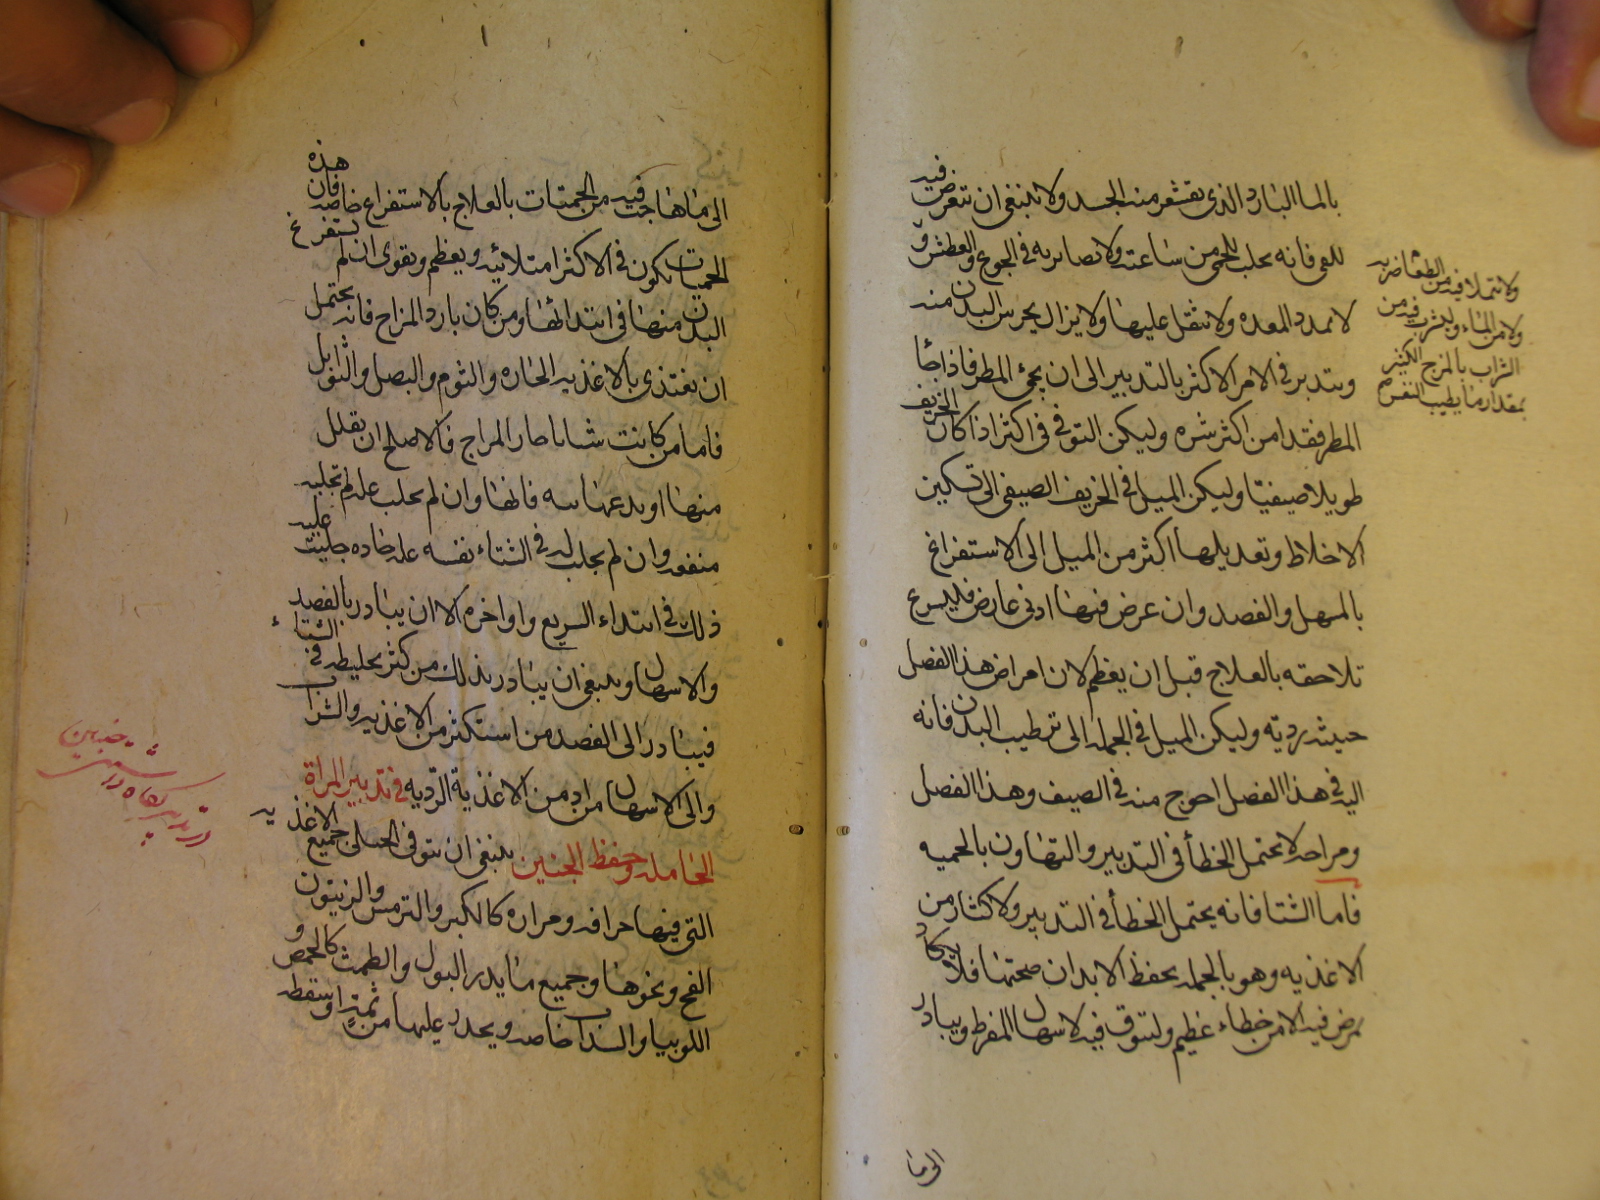 بالماء البارد الذى يقشعر منه الجسد ولا ينبغى ان يتعرض فيه
للقى فانه يجلب الحمى من ساعته ولا تصابر به فى الجوع والعطش و
لا تمدد المعده ولا تثقل عليها ولا يزال يحرس البدن منه
ويتدبر فى الامر الاكثر بالتدبير الى ان يجئ المطر فاذا جا
المطر فقد امن اكثر شره وليكن التوقى فى اكثر اذا كان الخريف
طويلا صيفيا وليكن الميل فى الخريف الصيفى الى تسكين
الاخلاط وتعديلها اكثر من الميل الى الاستفراغ
بالمسهل والفصد وان عرض فيها ادنى عارض فليسرع
تلاحقه بالعلاج قبل ان يعظم لان امراض هذا الفصل
خبيثه رديه وليكن الميل فى الجمله الى ترطيب البدن فانه
اليه فى هذا الفصل احوج منه فى الصيف وهذا الفصل
ومزاجه لا يحتمل الخطأ فى التدبير والتهاون بالحميه
فاما الشتا فانه يحتمل الخطأ فى التدبير ولاكثار من
الاغذيه وهو بالجمله يحفظ الابدان صحتها فلا يكاد
يمرض فيه الا من خطاء عظيم وليتوق فيه لاسهال المفرط ويبادر
ولا تتملا فيه من الطعام ضربه
ولا من الماء وليشرب فيه من
الشراب بالمزج الكثير
بمقدار ما يطيب النفس
الى ما
الى ما هاجت فيه من الحميات بالعلاج بالاستفراغ خاصه فان هذه
الحميات تكون فى الاكثر امتلائيه ويعظم ويقوى ان لم يستفرغ
البدن منها فى ابتدائها ومن كان بارد المزاج فانه يحتمل
ان يغتذى بالاغذيه الحاره والثوم والبصل والتوابل
فاما من كانت شابا حار المزاج فالاصلح ان يقلل
منها او يدعها فانها وان لم يجلب عليه
منفعه وان لم يجلب له فى الشتاء نفسه عله حاده جلبت عليه
ذلك فى ابتداء الربيع واواخره الا ان يبادر بالفصد
والاسهال وينبغى ان يبادر بذلك من كثر تخليطه فى الشتاء
فيبادر الى الفصد من استكثر من الاغذيه والشراب
والى الاسهال من ادمن الاغذية الرديه فى تدبير المراة
الحامله وحفظ الجنين ينبغى ان تتوقى الحبلى جميع الاغذيه
التى فيها حرافه ومراره كالكبر والترمس والزيتون
الفج ونحوها وجميع ما يدر البول والطمث كالحمص و
اللوبيا والسذاب خاصه ويحدد عليها من